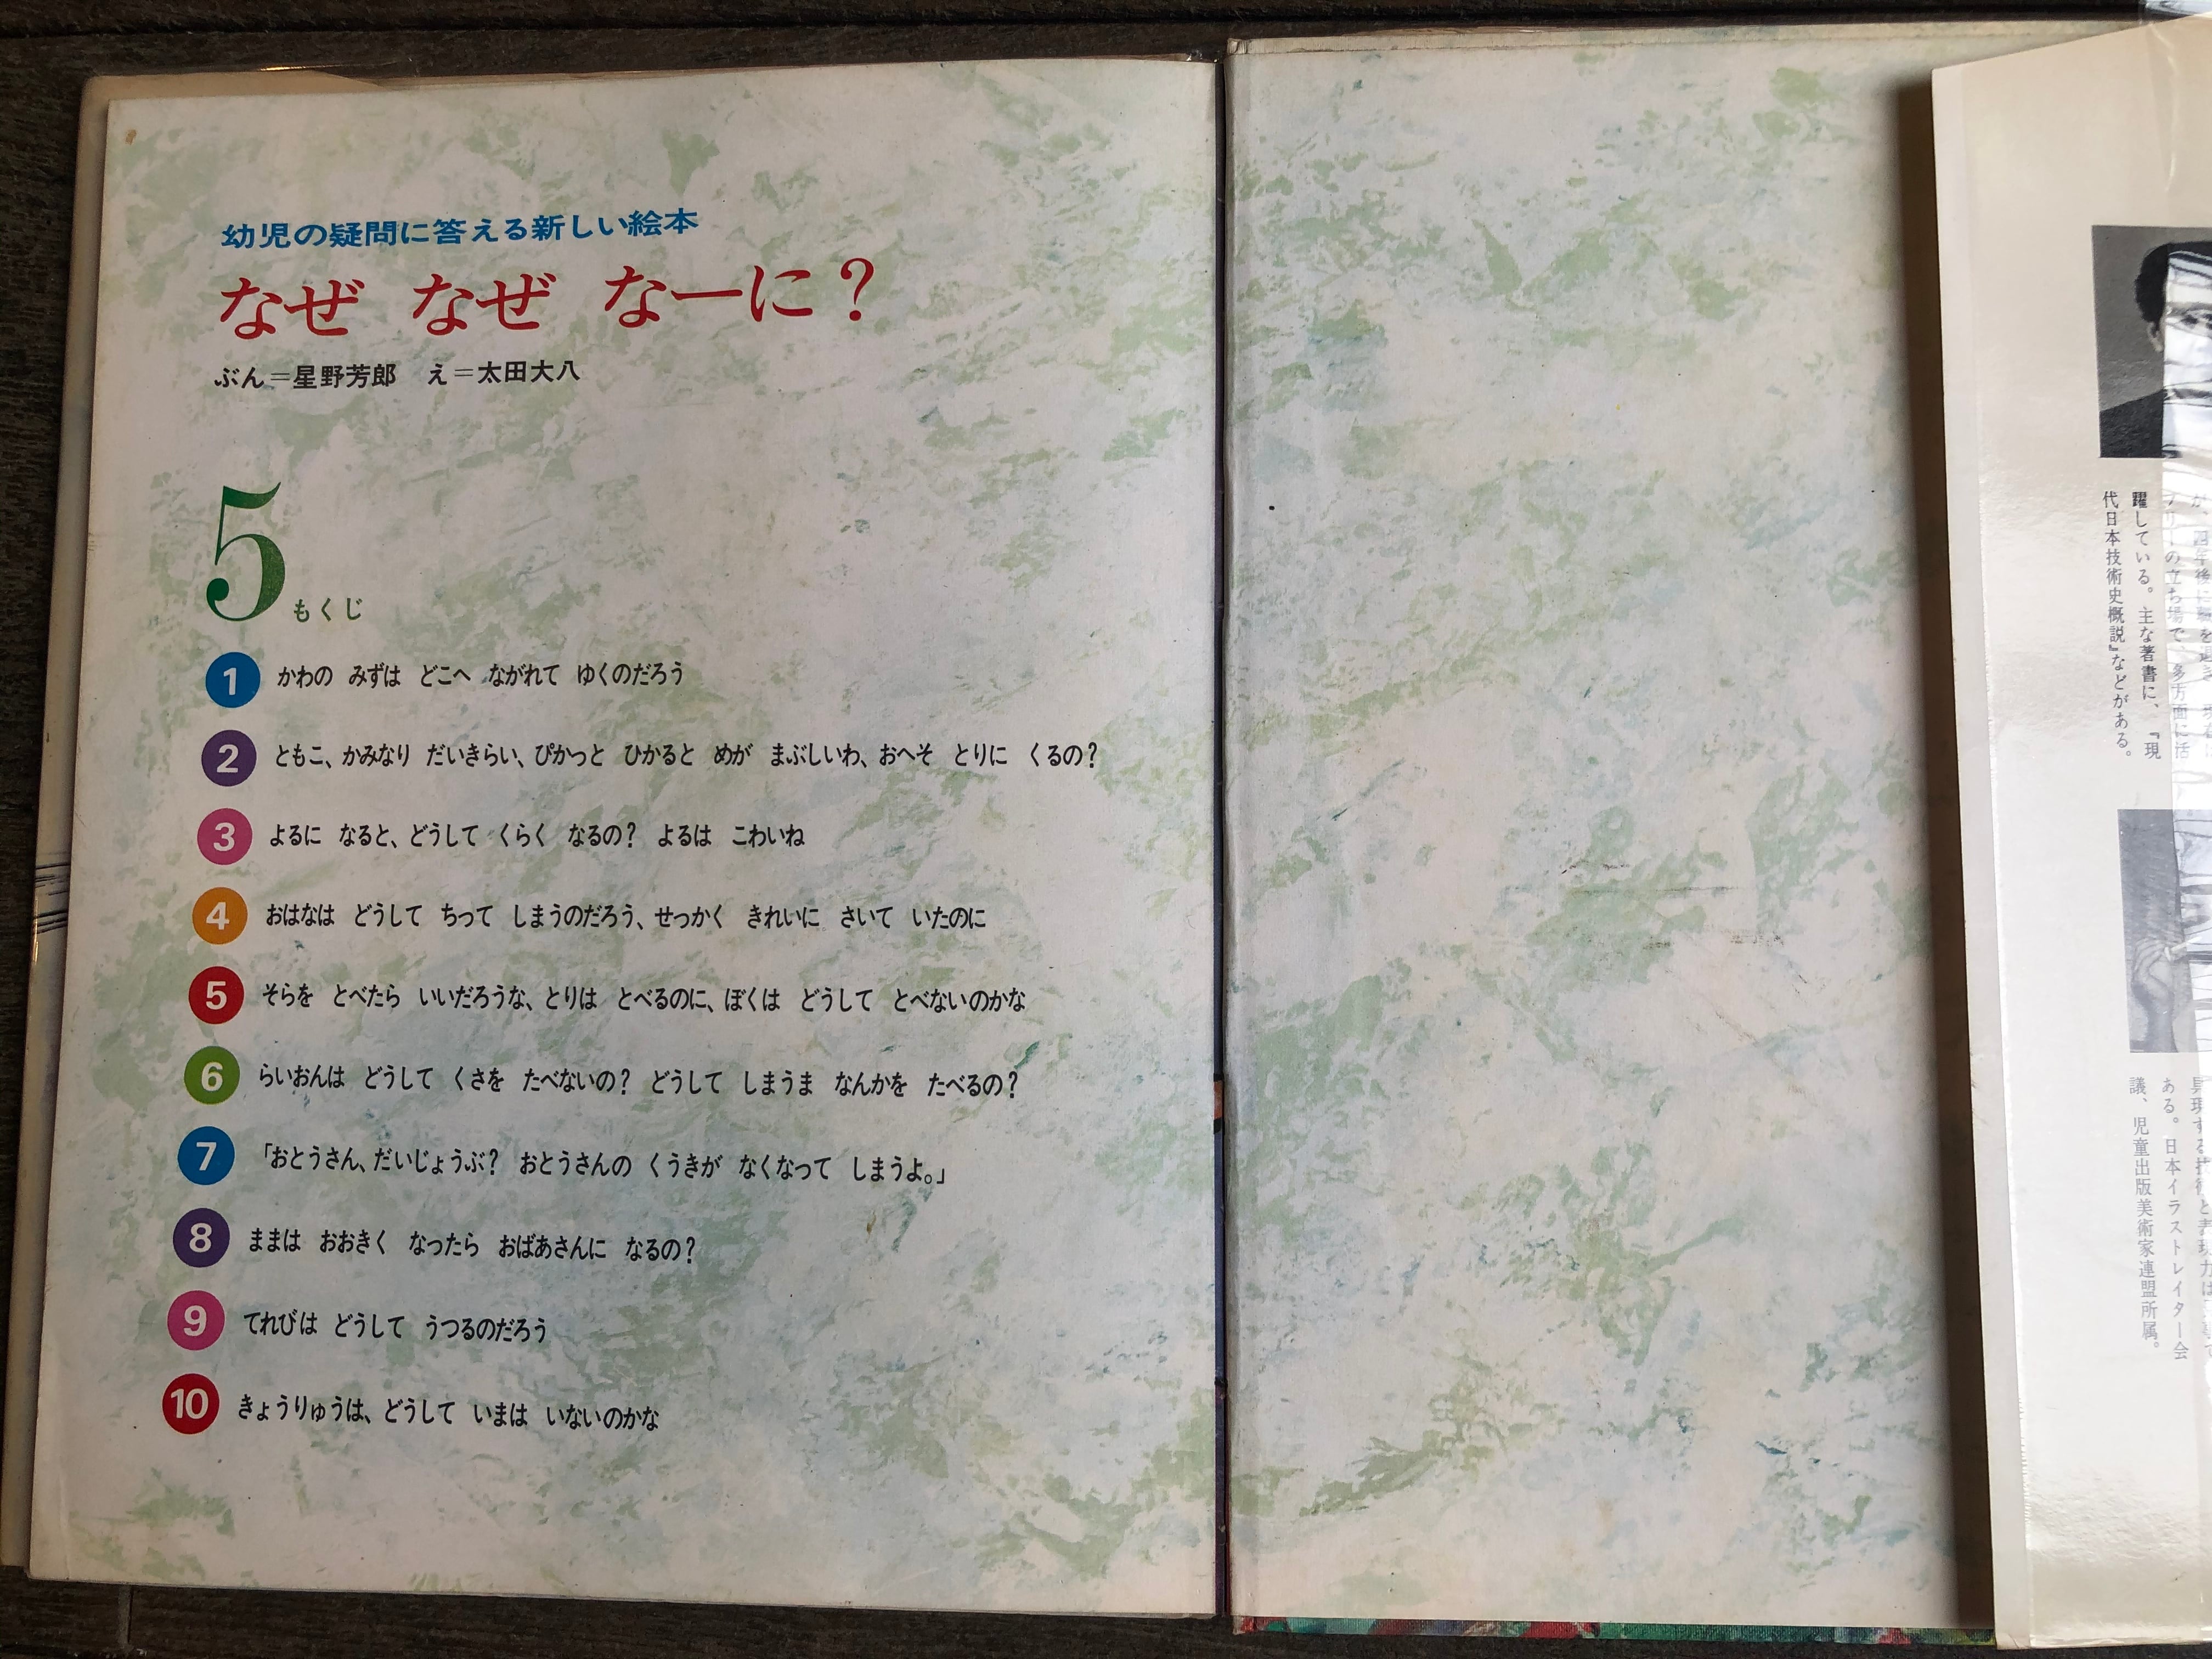 幼児の疑問に答える新しい絵本
なぜ なぜ なーに?
ぶん=星野芳郎 え=太田大八
5 もくじ
1 かわの みずは どこへ ながれて ゆくのだろう
2 ともこ、かみなり だいきらい、ぴかっと ひかると めが まぶしいわ、おへそ とりに くるの?
3 よるに なると、どうして くらく なるの? よるは こわいね
4 おはなは どうして ちって しまうのだろう、せっかく きれいに さいて いたのに
5 そらを とべたら いいだろうな、とりは とべるのに、ぼくは どうして とべないのかな
6 らいおんは どうして くさを たべないの? どうして しまうま なんかを たべるの?
7 「おとうさん、だいじょうぶ? おとうさんの くうきが なくなって しまうよ。」
8 ままは おおきく なったら おばあさんに なるの?
9 てれびは どうして うつるのだろう
10 きょうりゅうは、どうして いまは いないのかな
の立ち場で、多方面に活
躍している。主な著書に、『現
代日本技術史概説』などがある。
ある。日本イラストレイター会
議、児童出版美術家連盟所属。